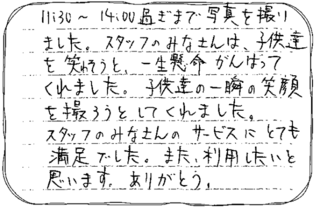 11:30～14:00過ぎまで写真を撮り
ました。スタッフのみなさんは、子供達
を笑わそうと、一生懸命がんばって
くれました。子供達の一瞬の笑顔
を撮ろうとしてくれました。
スタッフのみなさんのサービスにとても
満足でした。また、利用したいと
思います。ありがとう。